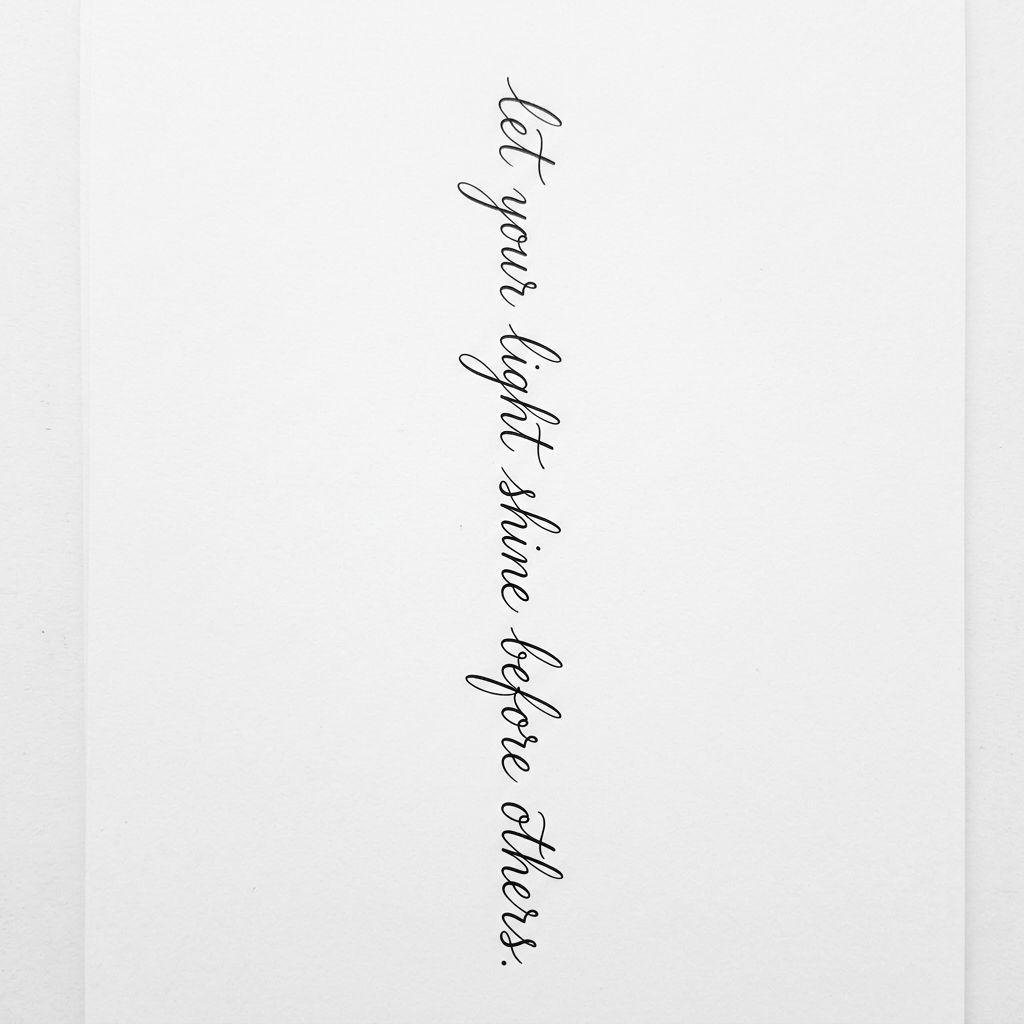 let your light shine before others.